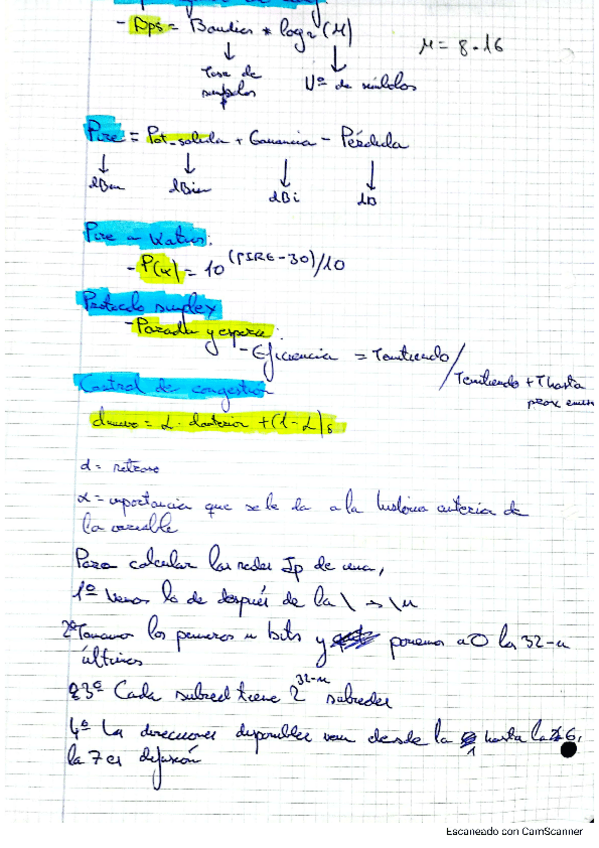 - Bps = Baudios * log₂(M)
M = 8 - 16
Tasa de
Nº de símbolos
Pire = Pot. salida + Ganancia - Pérdida
dBm dBm dBi dB
Pire a Watios:
- P(w) = 10^(PIRE-30)/10
Protocolo simplex
- Parada y espera:
- Eficiencia = Tomitiendo / Temitiendo + T hasta
prox emisi
Control de congestión
dnuevo = α · danterior + (1-α)s
d = retraso
α = importancia que se le da a la historia anterior de
la variable
Para calcular las redes Ip de una,
1º Vemos lo de después de la \ → \n
2º Tomamos los primeros n bits y ponemos a 0 los 32-n
últimos
3º Cada subred tiene 2^32-n subredes
4º Las direcciones disponibles van desde la 1 hasta la 6,
la 7 es difusión
Escaneado con CamScanner